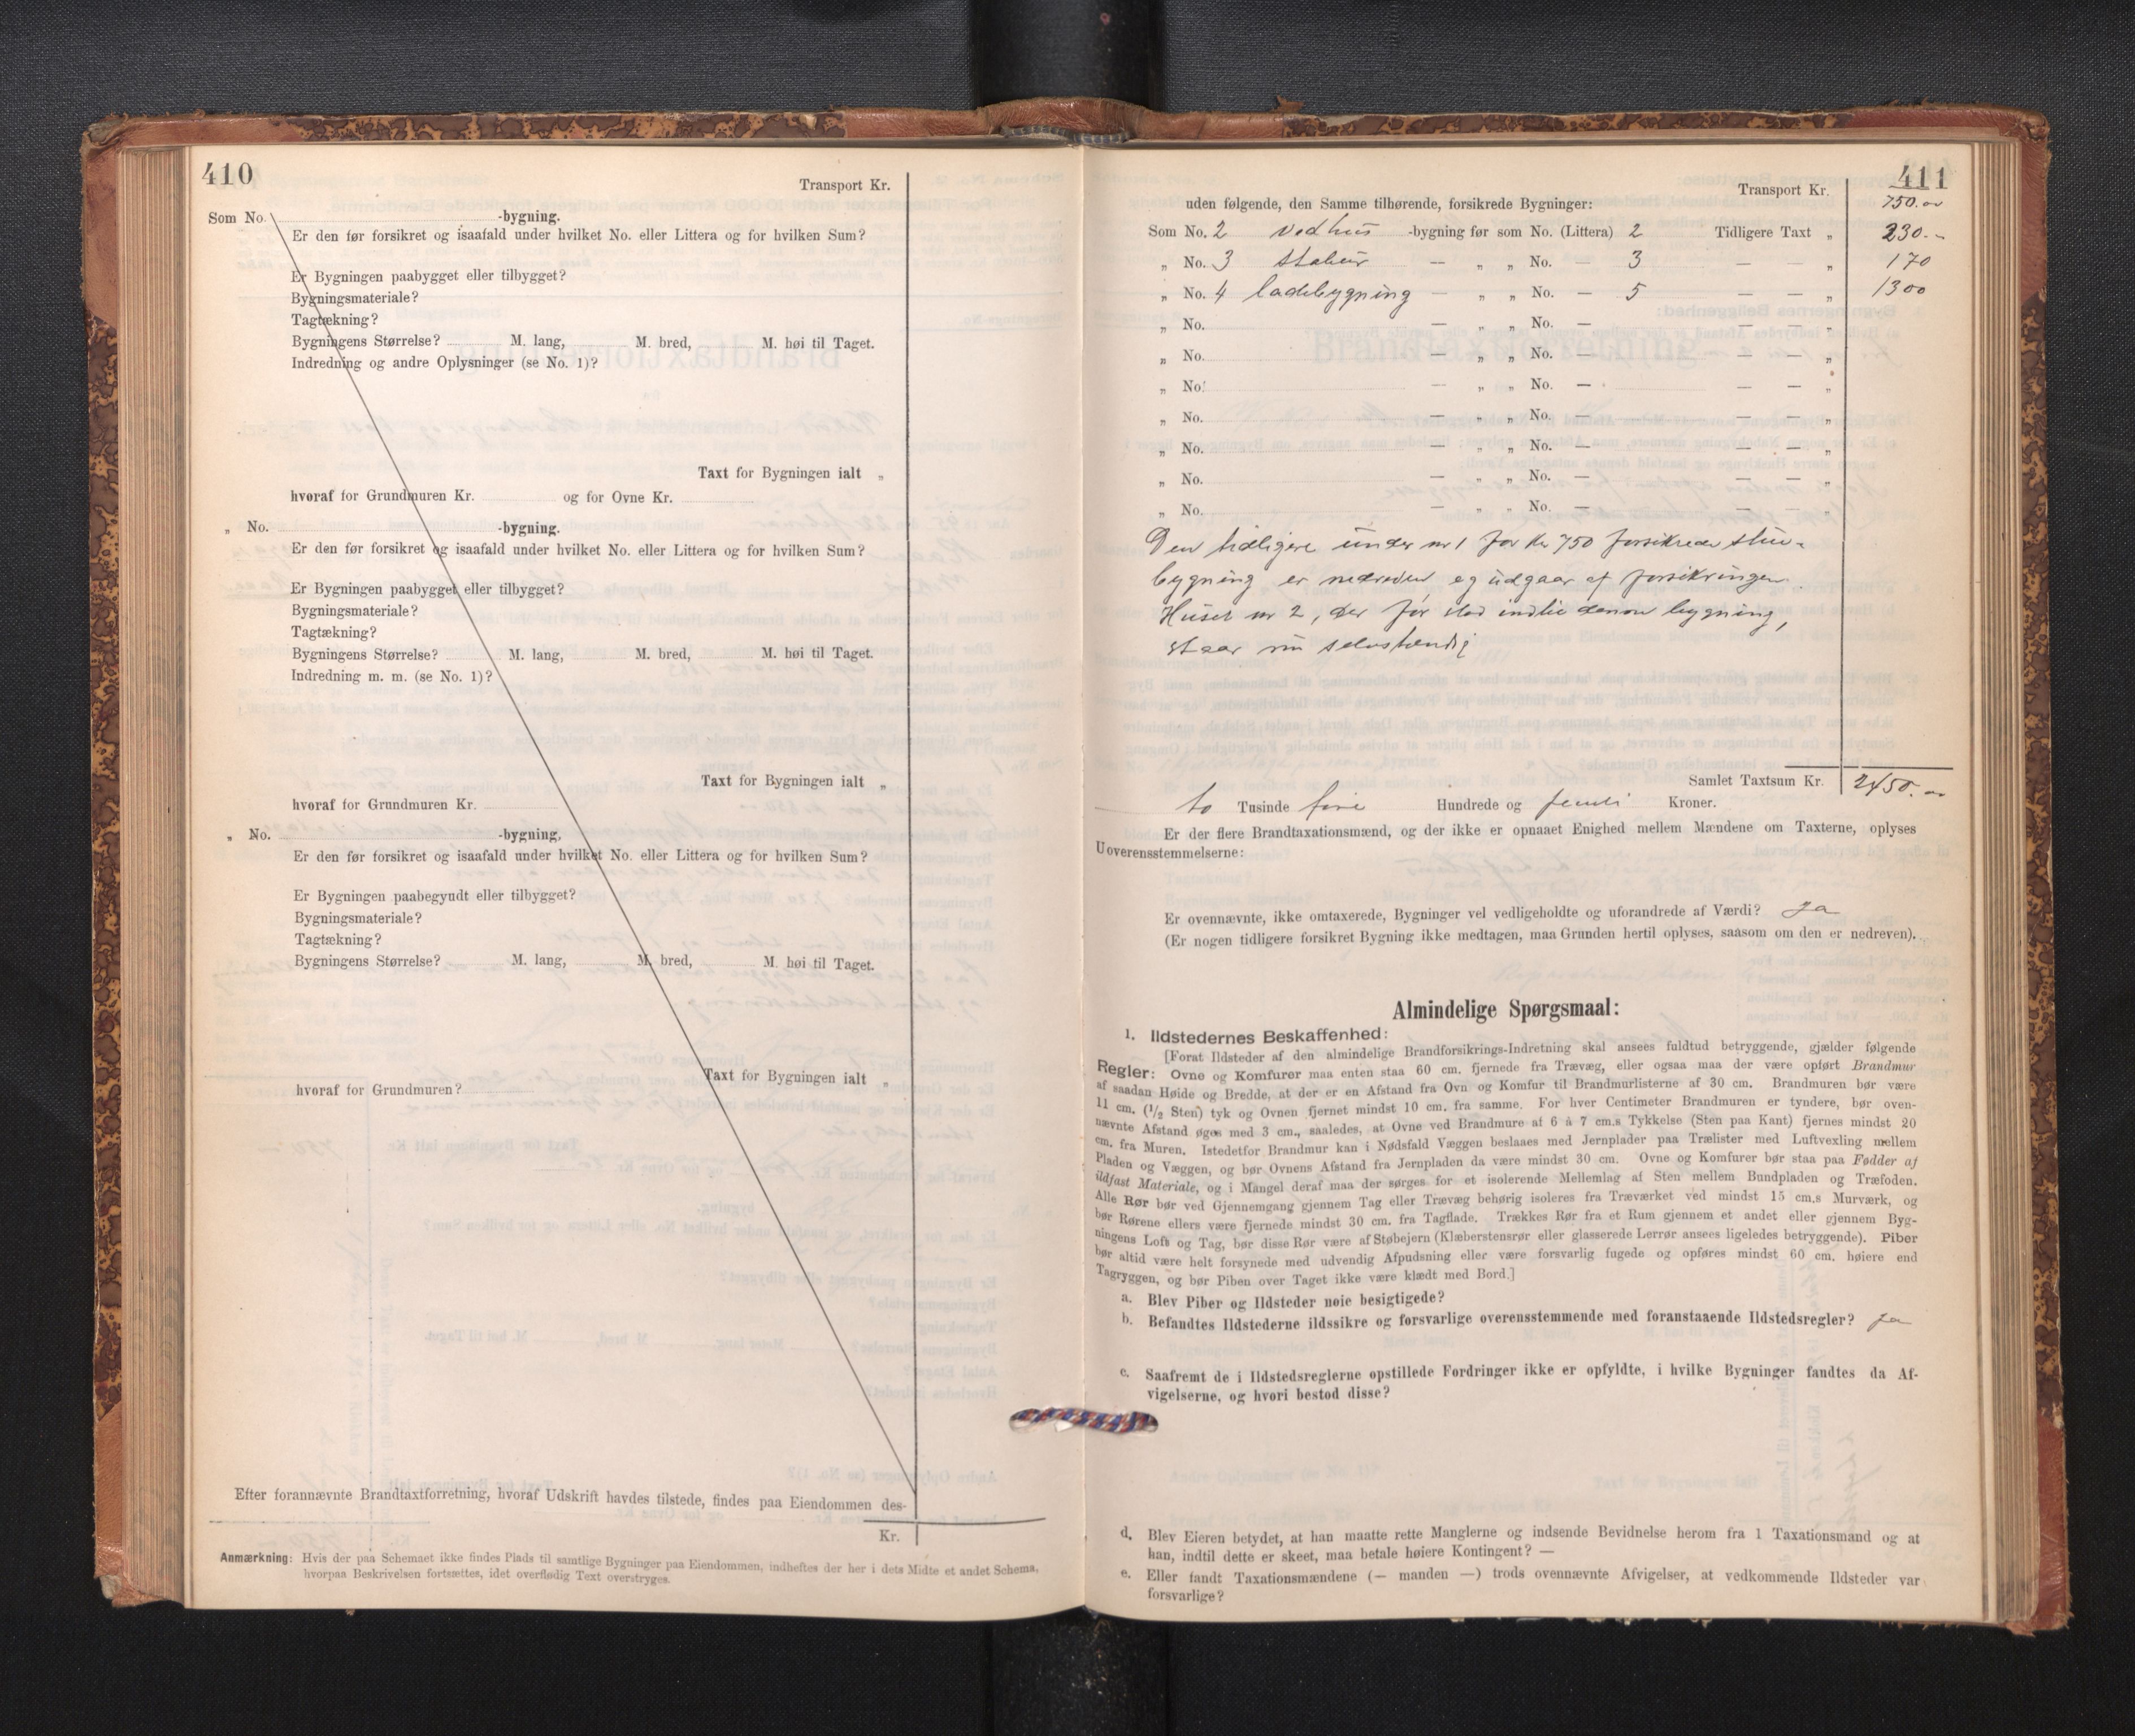 410
Transport Kr.
Som No. -bygning.
Er den før forsikret og isaafald under hvilket No. eller Littera og for hvilken Sum?
Er Bygningen paabygget eller tilbygget?
Bygningsmateriale?
Tagtækning?
Bygningens Størrelse? M. lang, M. bred, M. høi til Taget.
Indredning og andre Oplysninger (se No. 1)?
Taxt for Bygningen ialt „
hvoraf for Grundmuren Kr. og for Ovne Kr.
„ No. -bygning.
Er den før forsikret og isaafald under hvilket No. eller Littera og for hvilken Sum?
Er Bygningen paabygget eller tilbygget?
Bygningsmateriale?
Tagtækning?
Bygningens Størrelse? M. lang, M. bred, M. høi til Taget.
Indredning m. m. (se No. 1)?
Taxt for Bygningen ialt „
hvoraf for Grundmuren Kr.
„ No. -bygning,
Er den før forsikret og isaafald under hvilket No. eller Littera og for hvilken Sum?
Er Bygningen paabegyndt eller tilbygget?
Bygningsmateriale?
Tagtækning?
Bygningens Størrelse? M. lang, M. bred, M. høi til Taget.
Taxt for Bygningen ialt „
hvoraf for Grundmuren?
Efter forannævnte Brandtaxtforretning, hvoraf Udskrift havdes tilstede, findes paa Eiendommen des-
Kr.
Anmærkning: Hvis der paa Schemaet ikke findes Plads til samtlige Bygninger paa Eiendommen, indheftes der her i dets Midte et andet Schema,
hvorpaa Beskrivelsen fortsættes, idet overflødig Text overstryges.
411
Transport Kr. 750.00
uden følgende, den Samme tilhørende, forsikrede Bygninger:
Som No. 2 vedhus -bygning før som No. (Littera) 2 Tidligere Taxt „ 230.-
„ No. 3 stabur — „ „ No. — 3 — — „ 170
„ No. 4 ladebygning — „ „ No. — 5 — — „ 1300
„ No. — „ „ No. — — — „
„ No. — „ „ No. — — — „
„ No. — „ „ No. — — — „
„ No. — „ „ No. — — — „
„ No. — „ „ No. — — — „
„ No. — „ „ No. — — — „
„ No. — „ „ No. — — — „
Den tidligere under nr 1 for kr 750 forsikrede stue-
bygning er nedreven og udgaar af forsikringen.
Huset nr 2, der før stod indtil denne bygning,
staar nu selvstændig
Samlet Taxtsum Kr. 2450.00
to Tusinde fire Hundrede og femti Kroner.
Er der flere Brandtaxationsmænd, og der ikke er opnaaet Enighed mellem Mændene om Taxterne, oplyses
Uoverensstemmelserne:
Er ovennævnte, ikke omtaxerede, Bygninger vel vedligeholdte og uforandrede af Værdi? Ja
(Er nogen tidligere forsikret Bygning ikke medtagen, maa Grunden hertil oplyses, saasom om den er nedreven).
Almindelige Spørgsmaal:
1. Ildstedernes Beskaffenhed:
[Forat Ildsteder af den almindelige Brandforsikrings-Indretning skal ansees fuldtud betryggende, gjælder følgende
Regler: Ovne og Komfurer maa enten staa 60 cm. fjernede fra Trævæg, eller ogsaa maa der være opført Brandmur
af saadan Høide og Bredde, at der er en Afstand fra Ovn og Komfur til Brandmurlisterne af 30 cm. Brandmuren bør være
11 cm. (1/2 Sten) tyk og Ovnen fjernet mindst 10 cm. fra samme. For hver Centimeter Brandmuren er tyndere, bør oven-
nævnte Afstand øges med 3 cm., saaledes, at Ovne ved Brandmure af 6 à 7 cm.s Tykkelse (Sten paa Kant) fjernes mindst 20
cm. fra Muren. Istedetfor Brandmur kan i Nødsfald Væggen beslaaes med Jernplader paa Trælister med Luftvexling mellem
Pladen og Væggen, og bør Ovnens Afstand fra Jernpladen da være mindst 30 cm. Ovne og Komfurer bør staa paa Fødder af
ildfast Materiale, og i Mangel deraf maa der sørges for et isolerende Mellemlag af Sten mellem Bundpladen og Træfoden.
Alle Rør bør ved Gjennemgang gjennem Tag eller Trævæg behørig isoleres fra Træværket ved mindst 15 cm.s Murværk, og
bør Rørene ellers være fjernede mindst 30 cm. fra Tagflade. Trækkes Rør fra et Rum gjennem et andet eller gjennem Byg-
ningens Loft og Tag, bør disse Rør være af Støbejern (Klæberstensrør eller glasserede Lerrør ansees ligeledes betryggende). Piber
bør altid være helt forsynede med udvendig Afpudsning eller være forsvarlig fugede og opføres mindst 60 cm. høiere end
Tagryggen, og bør Piben over Taget ikke være klædt med Bord.]
a. Blev Piber og Ildsteder nøie besigtigede?
b. Befandtes Ildstederne ildssikre og forsvarlige overensstemmende med foranstaaende Ildstedsregler? Ja
c. Saafremt de i Ildstedsreglerne opstillede Fordringer ikke er opfyldte, i hvilke Bygninger fandtes da Af-
vigelserne, og hvori bestod disse?
d. Blev Eieren betydet, at han maatte rette Manglerne og indsende Bevidnelse herom fra 1 Taxationsmand og at
han, indtil dette er skeet, maa betale høiere Kontingent? —
e. Eller fandt Taxationsmændene (— manden —) trods ovennævnte Afvigelser, at vedkommende Ildsteder var
forsvarlige?